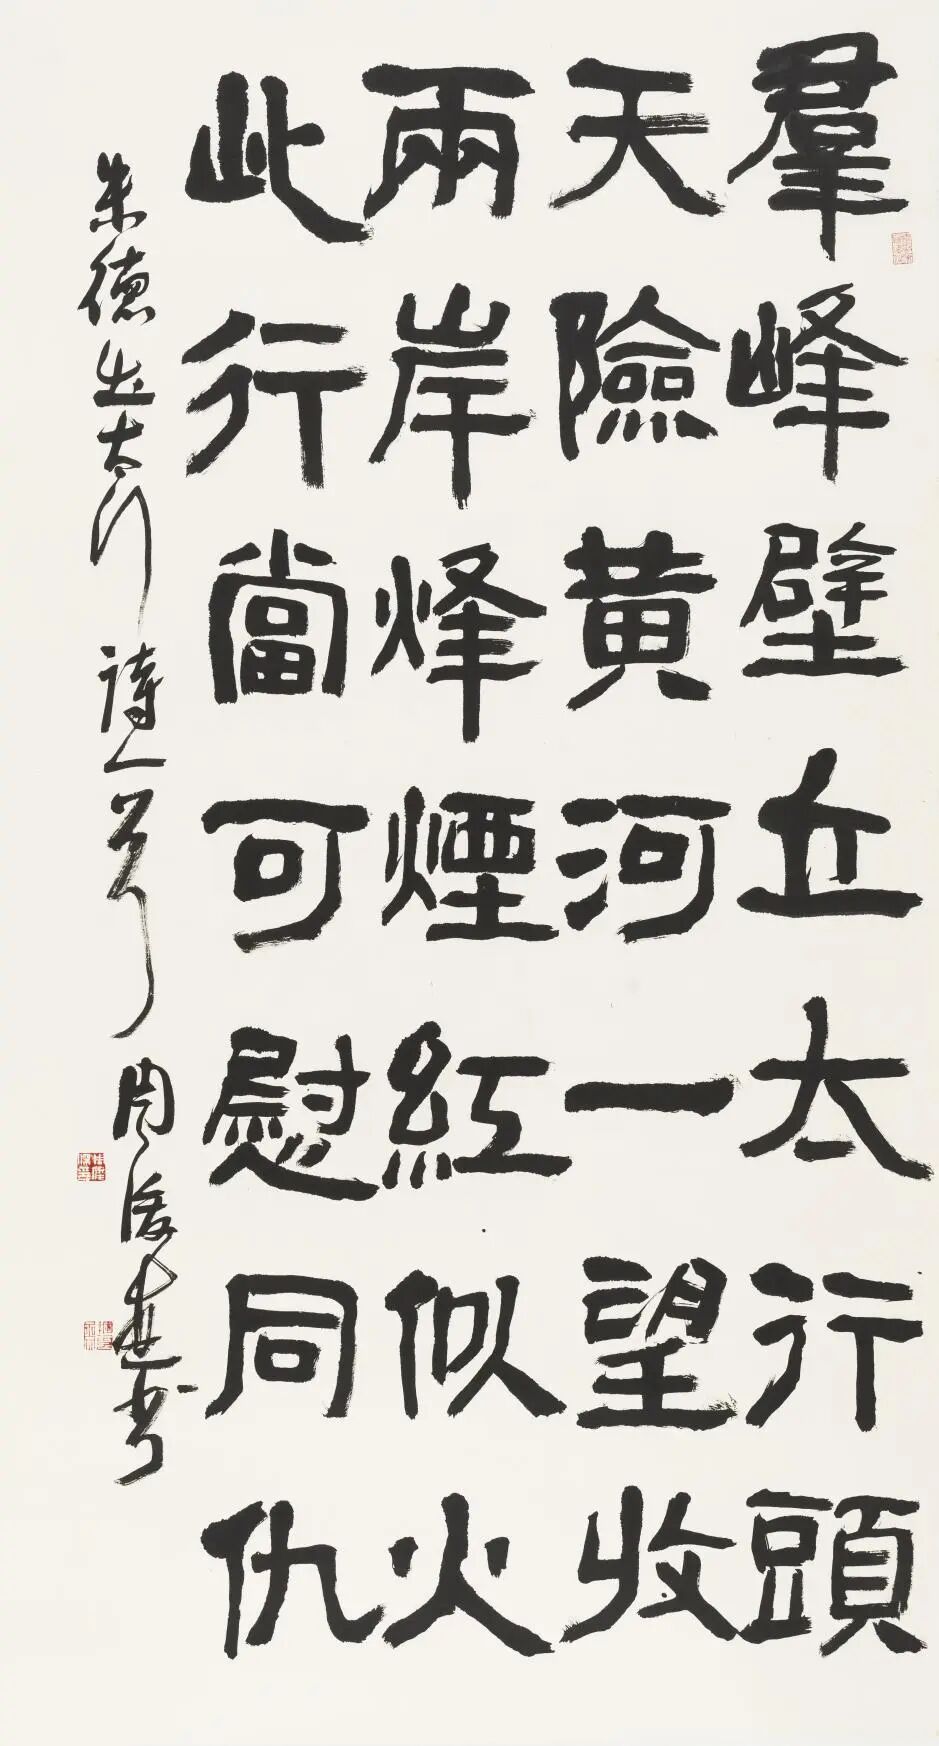 羣峰壁立太行頭
天險黄河一望收
兩岸烽煙紅似火
此行當可慰同仇
朱德出太行詩一首 周 书